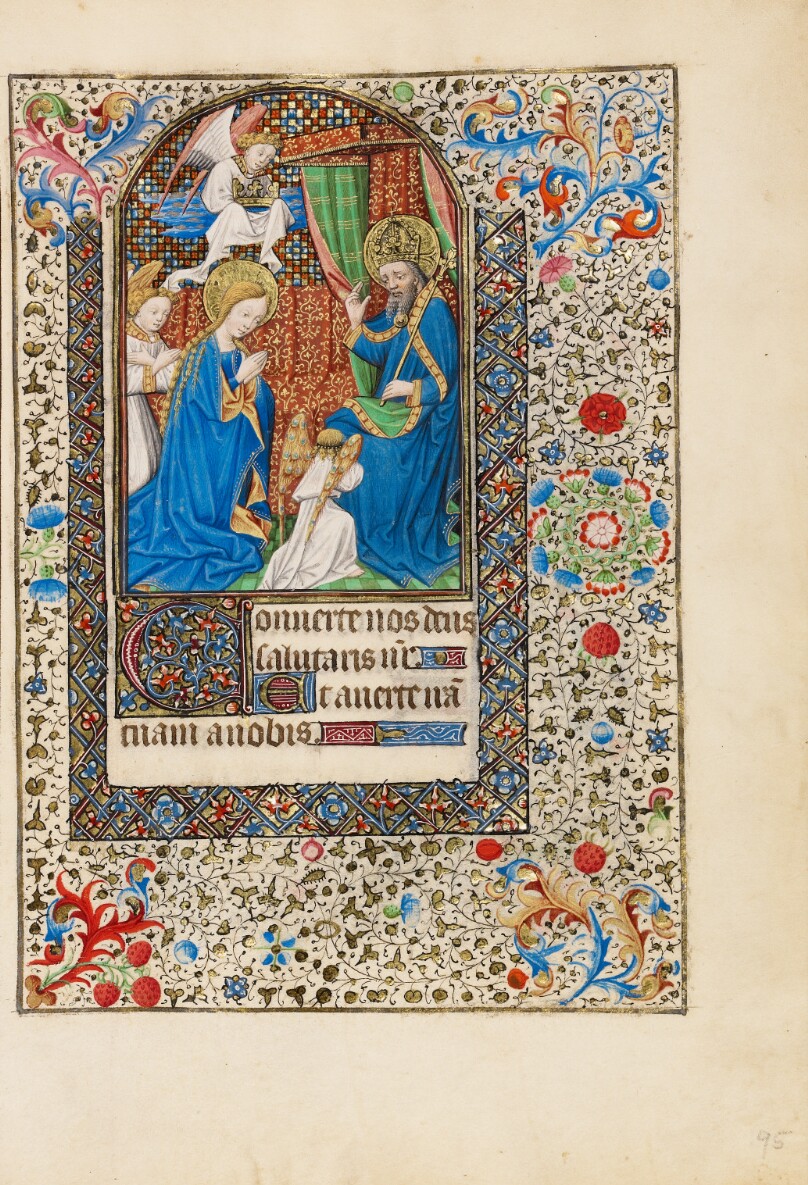 Conuerte nos deus
salutaris nr̄
Et auerte irā
tuam a nobis.
95